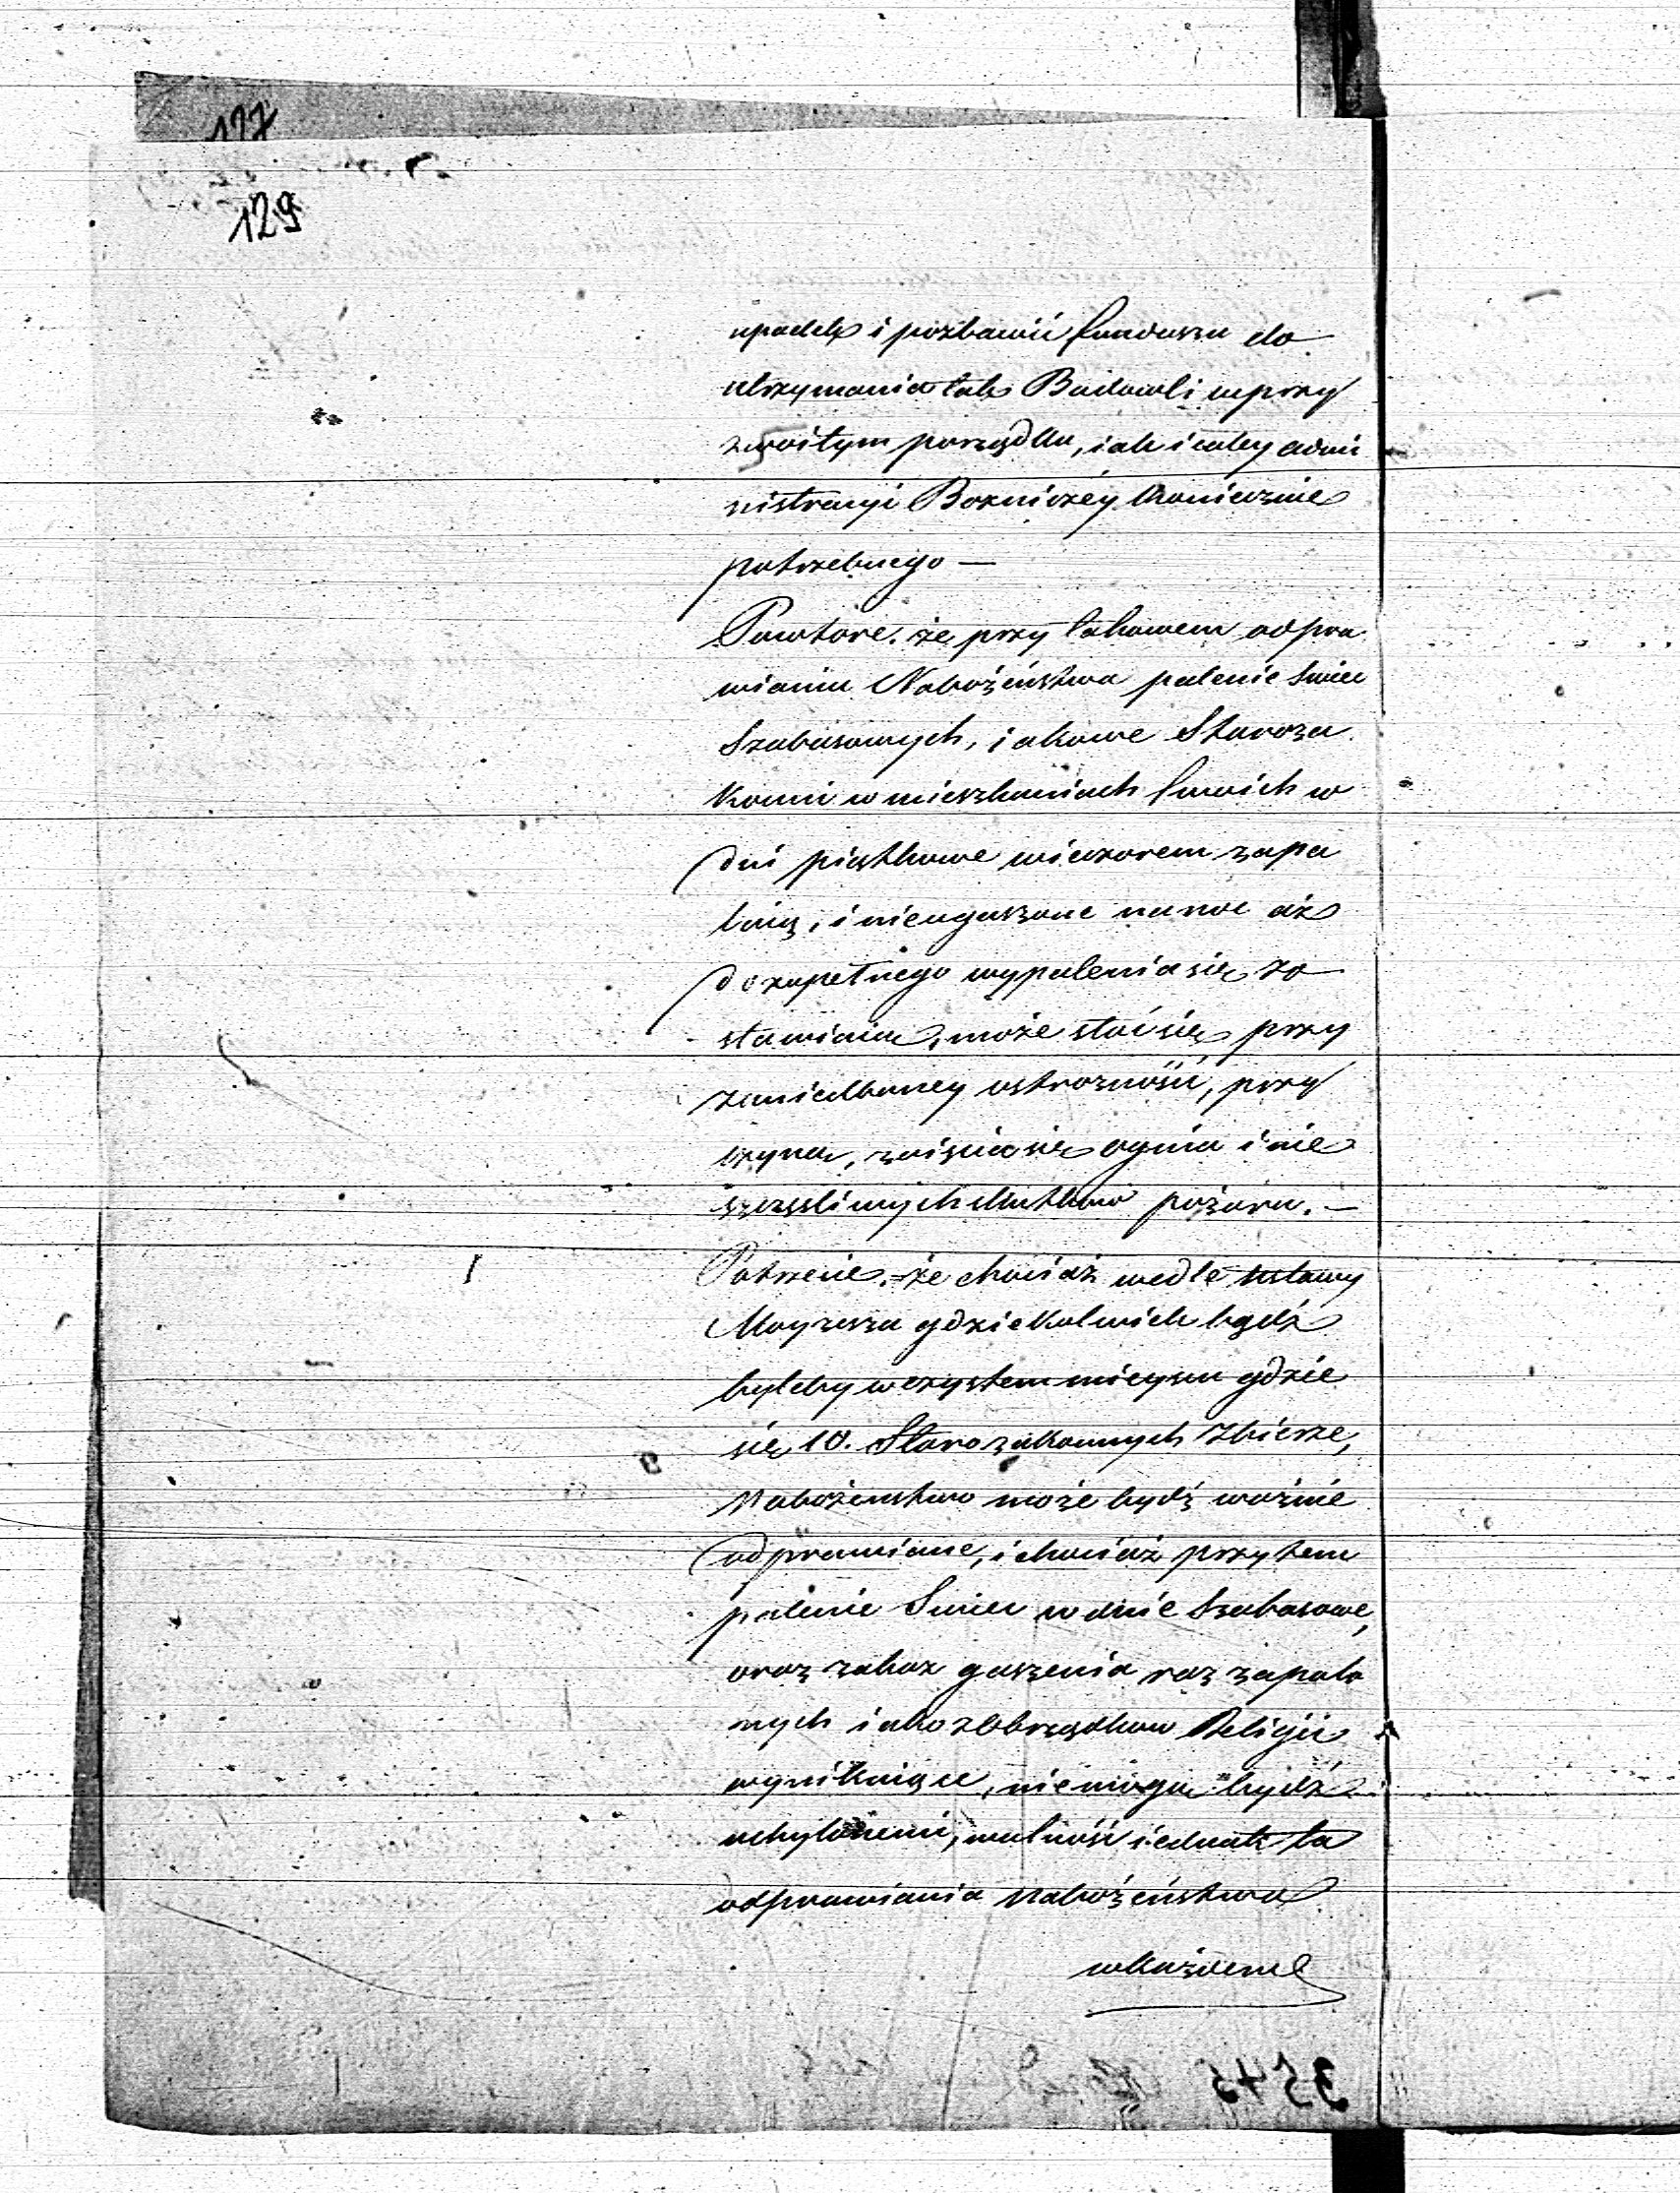 127
129
upadek i pozbawić funduszu do
utrzymania tak Budowli w przy
zwoitym porządku, iak i całey admi
nistracyi Bożniczéy koniecznie
potrzebnego —
Powtóre. że przy takowem odpra
wianiu Nabożeństwa palenie Swiec
Szabasowych, iakowe Staroza
konni w mieszkaniach swoich w
dni piątkowe wieczorem zapa
laią, i nieugaszone na noc aż
do zupełnego wypalenia się zo
stawiaią, może stać się przy
zaniedbaney ostrożności, przy
czyną, zaięcia się ognia i nie
szczęśliwych skutków pożaru. —
Potrzecie. że chociaż wedle ustawy
Moyżesza gdziekolwiek bądź
byleby w czystem mieyscu gdzie
się 10. Starozakonnych zbierze,
Nabożenstwo może bydź ważnie
odprawiane, i chociaż przytem
palenie Swiec w dnie Szabasowe,
oraz zakaz gaszenia raz zapalo
nych iako z Obrządków Religii
wynikaiące, nie mogą bydź
uchylonemi, wolność iednak ta
odprawiania Nabożeństwa
w każdem
3545